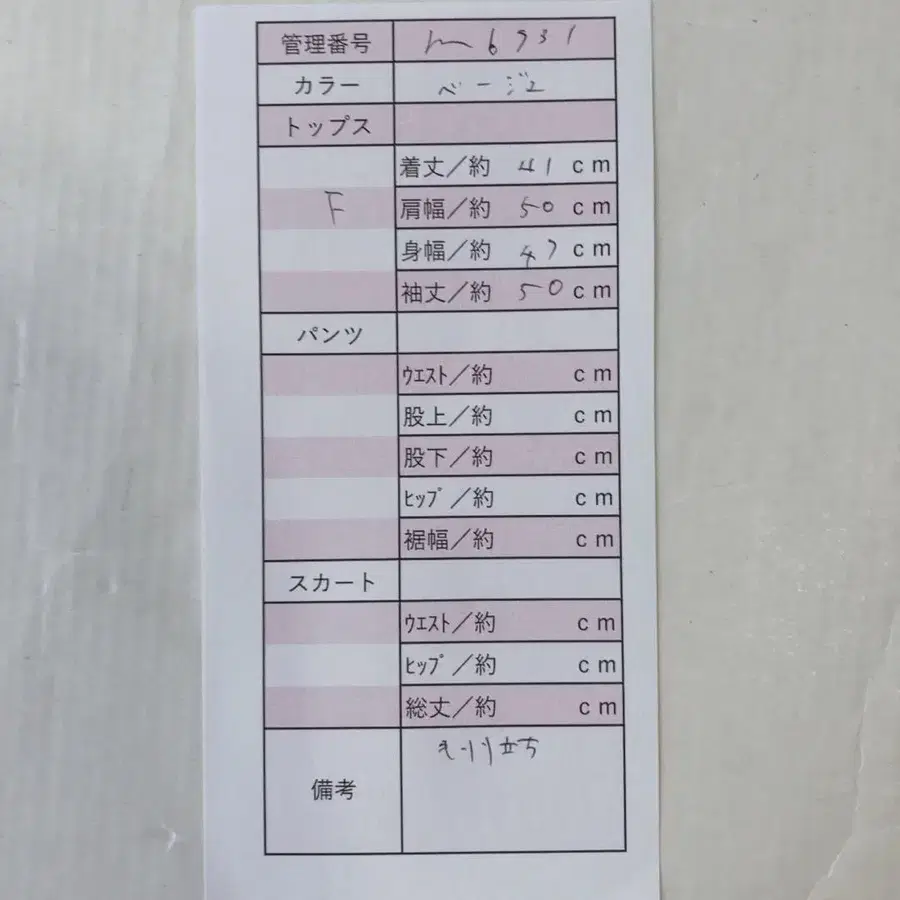 管理番号 m6931
カラー ベージュ
トップス
着丈／約 41 cm
F 肩幅／約 50 cm
身幅／約 47 cm
袖丈／約 50 cm
パンツ
ｳｴｽﾄ／約 cm
股上／約 cm
股下／約 cm
ﾋｯﾌﾟ／約 cm
裾幅／約 cm
スカート
ｳｴｽﾄ／約 cm
ﾋｯﾌﾟ／約 cm
総丈／約 cm
毛羽立ち
備考